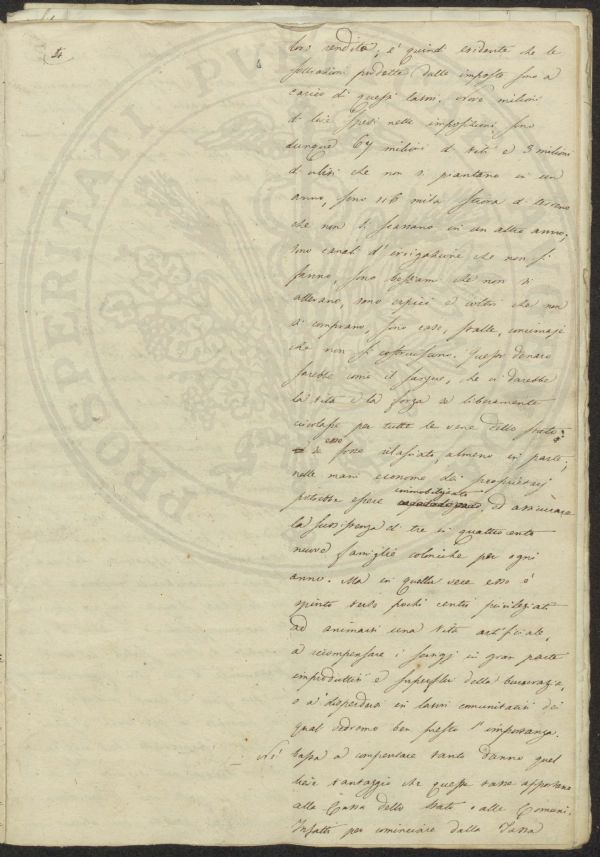 loro rendita, è quindi evidente che le
sottrazioni prodotte dalle imposte sono a
carico di questi lavori. Nove milioni
di lire spesi nelle imposizioni sono
dunque 67 milioni di viti e 3 milioni
d'ulivi che non si piantano in un
anno, sono 116 mila stiora di terreno
che non si scassano in un altro anno,
sono canali d'irrigazione che non si
fanno, sono bestiami che non si
allevano, sono capici e coltri che non
si comprano, sono case, stalle, concimaje
che non si costruiscono. Questo denaro
sarebbe come il sangue, che ci darebbe
la vita e la forza se liberamente
circolasse per tutte le vene dello stato:
se esso fosse rilasciato, almeno in parte,
nelle mani econome dei proprietarj
potrebbe essere immobilizzato ed assicurare
la sussistenza di tre in quattrocento
nuove famiglie coloniche per ogni
anno. Ma in quella vece esso è
spinto verso pochi centri privilegiati
ad animarvi una vita artificiale,
a ricompensare i servigj in gran parte
improduttivi e superflui della burocrazia,
o a disperdersi in lavori comunitativi dei
quali vedremo ben presto l'importanza.
Nè vassi a compensare tanto danno quel
lieve vantaggio che queste tasse apportano
alla Cassa dello Stato e alle Comuni.
Infatti per cominciare dalla Tassa
POSPERITATI PVB